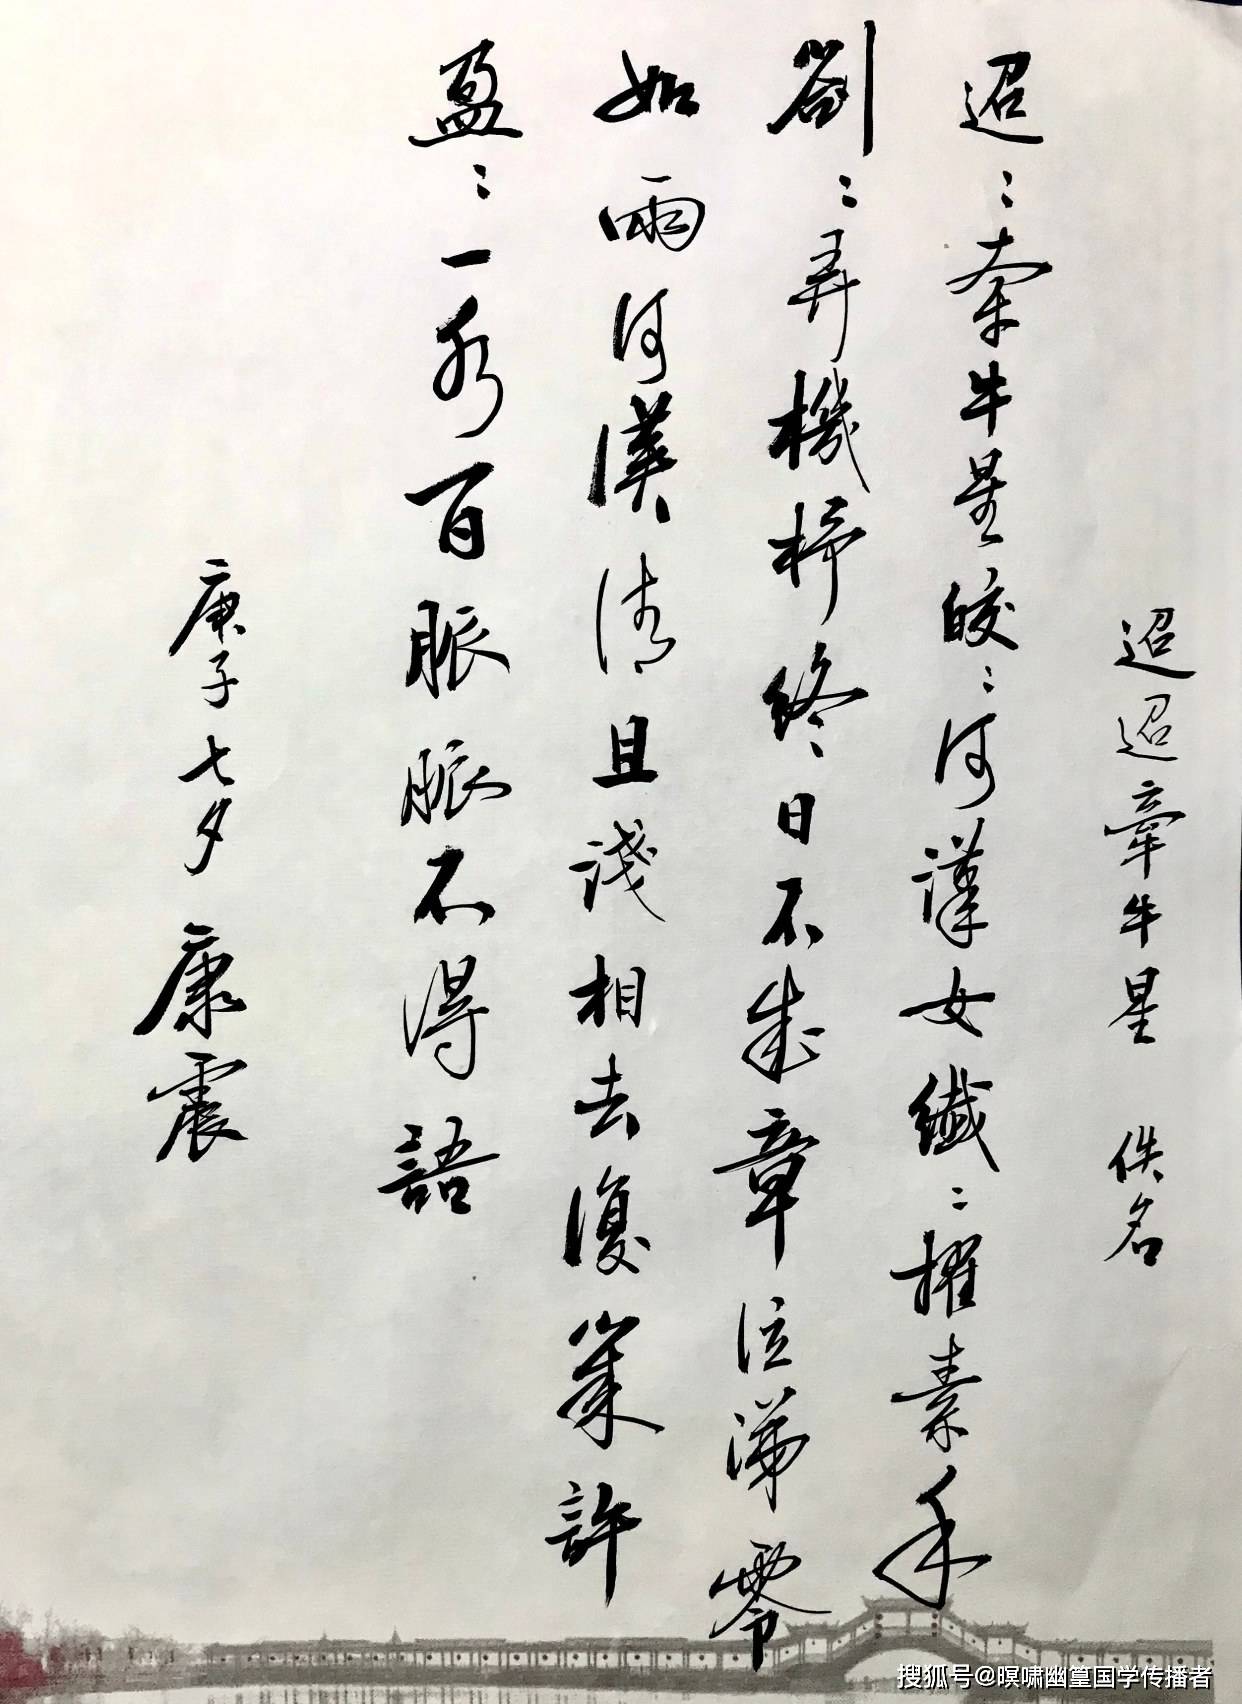 迢迢牽牛星 佚名
迢〻牵牛星皎〻河漢女纖〻擢素手
劄〻弄機杼終日不成章泣涕零
如雨河漢清且淺相去復幾許
盈〻一水百脈脈不得語
庚子七夕 康震
搜狐号@暝啸幽篁国学传播者